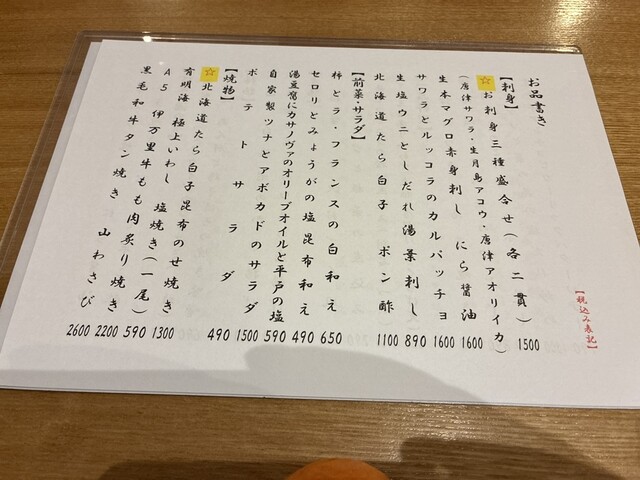 お品書き
【税込み表記】
【刺身】
☆お刺身三種盛合せ(各二貫) 1500
(唐津サワラ・生月島アコウ・唐津アオリイカ)
生本マグロ赤身刺し にら醤油 1600
サワラとルッコラのカルパッチョ 1600
生塩ウニとしだれ湯葉刺し 890
北海道たら白子 ポン酢 1100
【前菜・サラダ】
柿とラ・フランスの白和え 650
セロリとみょうがの塩昆布和え 490
湯豆腐にカサノヴァのオリーブオイルと平戸の塩 590
自家製ツナとアボカドのサラダ 1500
ポテトサラダ 490
【焼物】
☆北海道たら白子昆布のせ焼き 1300
有明海 極上いわし 塩焼き(一尾) 590
A5 伊万里牛もも肉炙り焼き 2200
黒毛和牛タン焼き 山わさび 2600